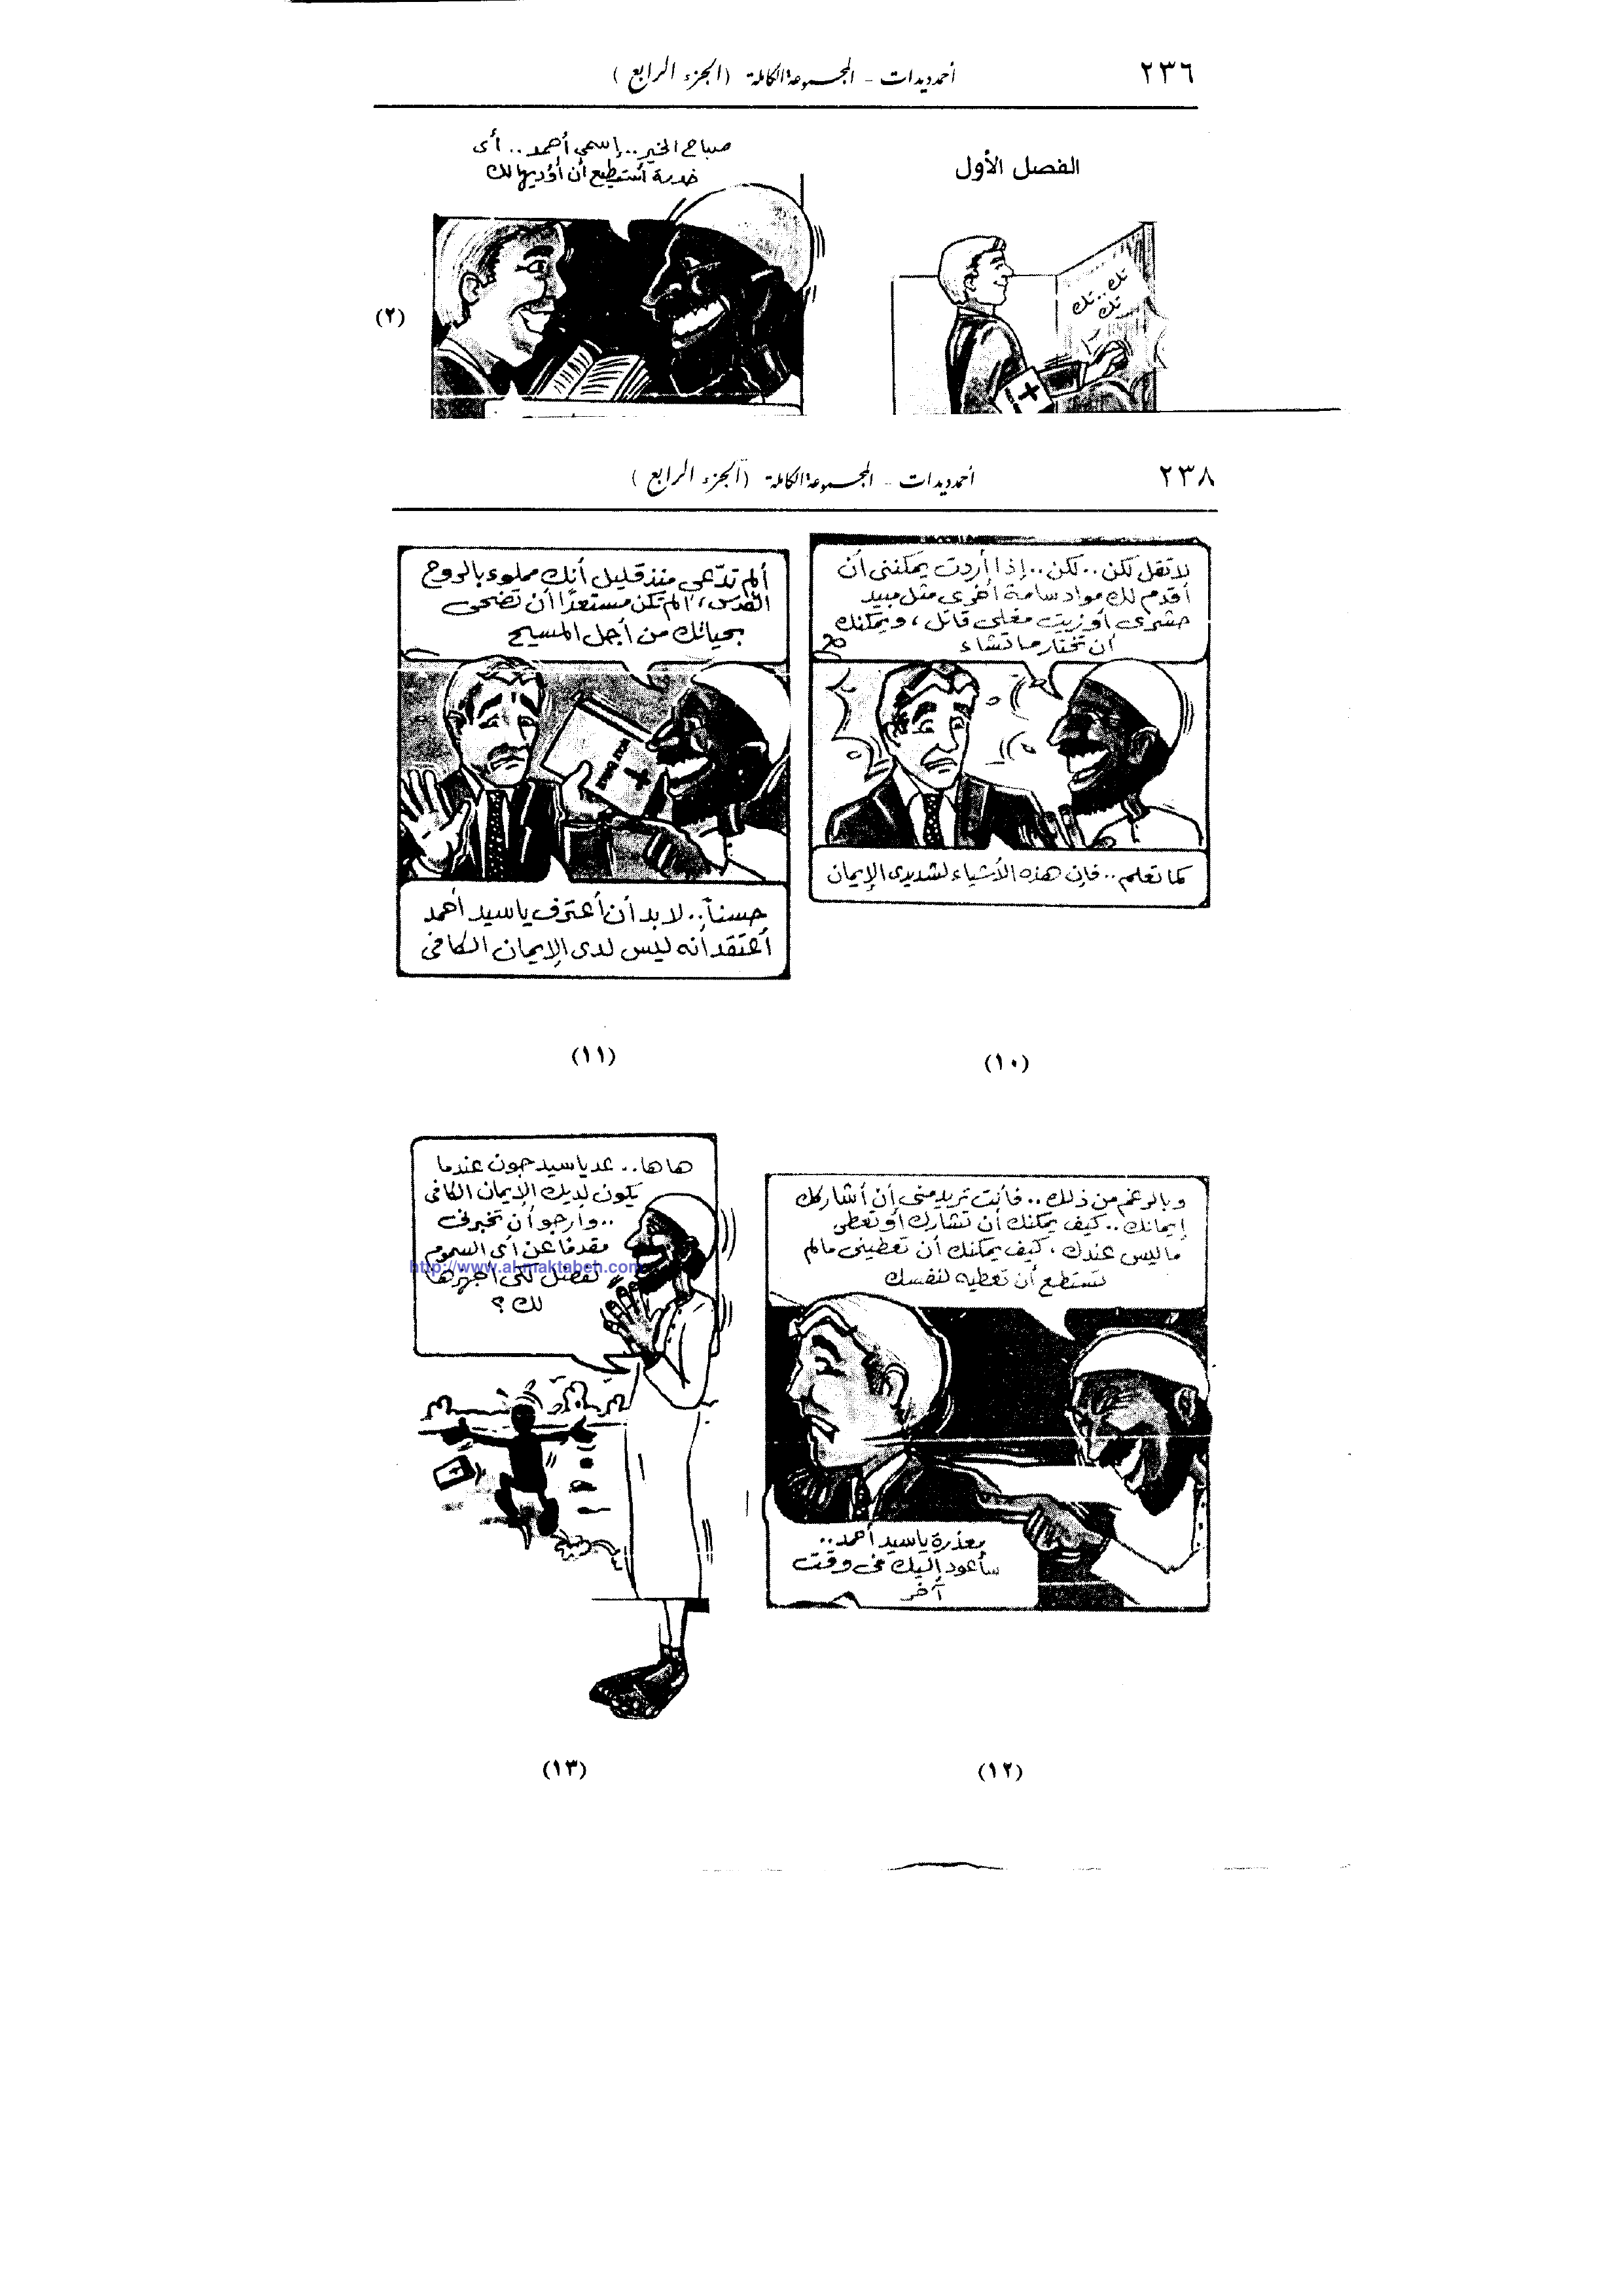 ٢٣٦
أحمد ديدات - المجموعة الكاملة (الجزء الرابع)
الفصل الأول
تك .. تك
تك
صباح الخير .. إسمي أحمد .. أى
خدمة أستطيع أن أؤديها لك
(٢)
٢٣٨
أحمد ديدات - المجموعة الكاملة (الجزء الرابع)
لا تقل لكن .. لكن .. إذا أردت يمكننى أن
أقدم لك مواد سامة أخرى مثل مبيد
حشرى أو زيت مغلى قاتل ، ويمكنك
أن تختار ما تشاء
كما تعلم .. فإن هذه الأشياء لشديدى الإيمان
(١٠)
ألم تدّعى منذ قليل أنك مملوء بالروح
القدس ، ألم تكن مستعدًا أن تضحى
بحياتك من أجل المسيح
HOLY BIBLE
حسناً .. لا بد أن أعترف يا سيد أحمد
أعتقد أنه ليس لدى الإيمان الكافى
(١١)
وبالرغم من ذلك .. فأنت تريد منى أن أشاركك
إيمانك .. كيف يمكنك أن تشارك أو تعطى
ما ليس عندك ، كيف يمكنك أن تعطينى مالم
تستطع أن تعطيه لنفسك
معذرة يا سيد أحمد ..
سأعود إليك فى وقت
آخر
(١٢)
ها ها .. عد يا سيد جون عندما
يكون لديك الإيمان الكافى
.. وأرجو أن تخبرنى
مقدمًا عن أى السموم
http://www.al-maktabeh.com
تفضل لكى أجهزها
لك ؟
(١٣)